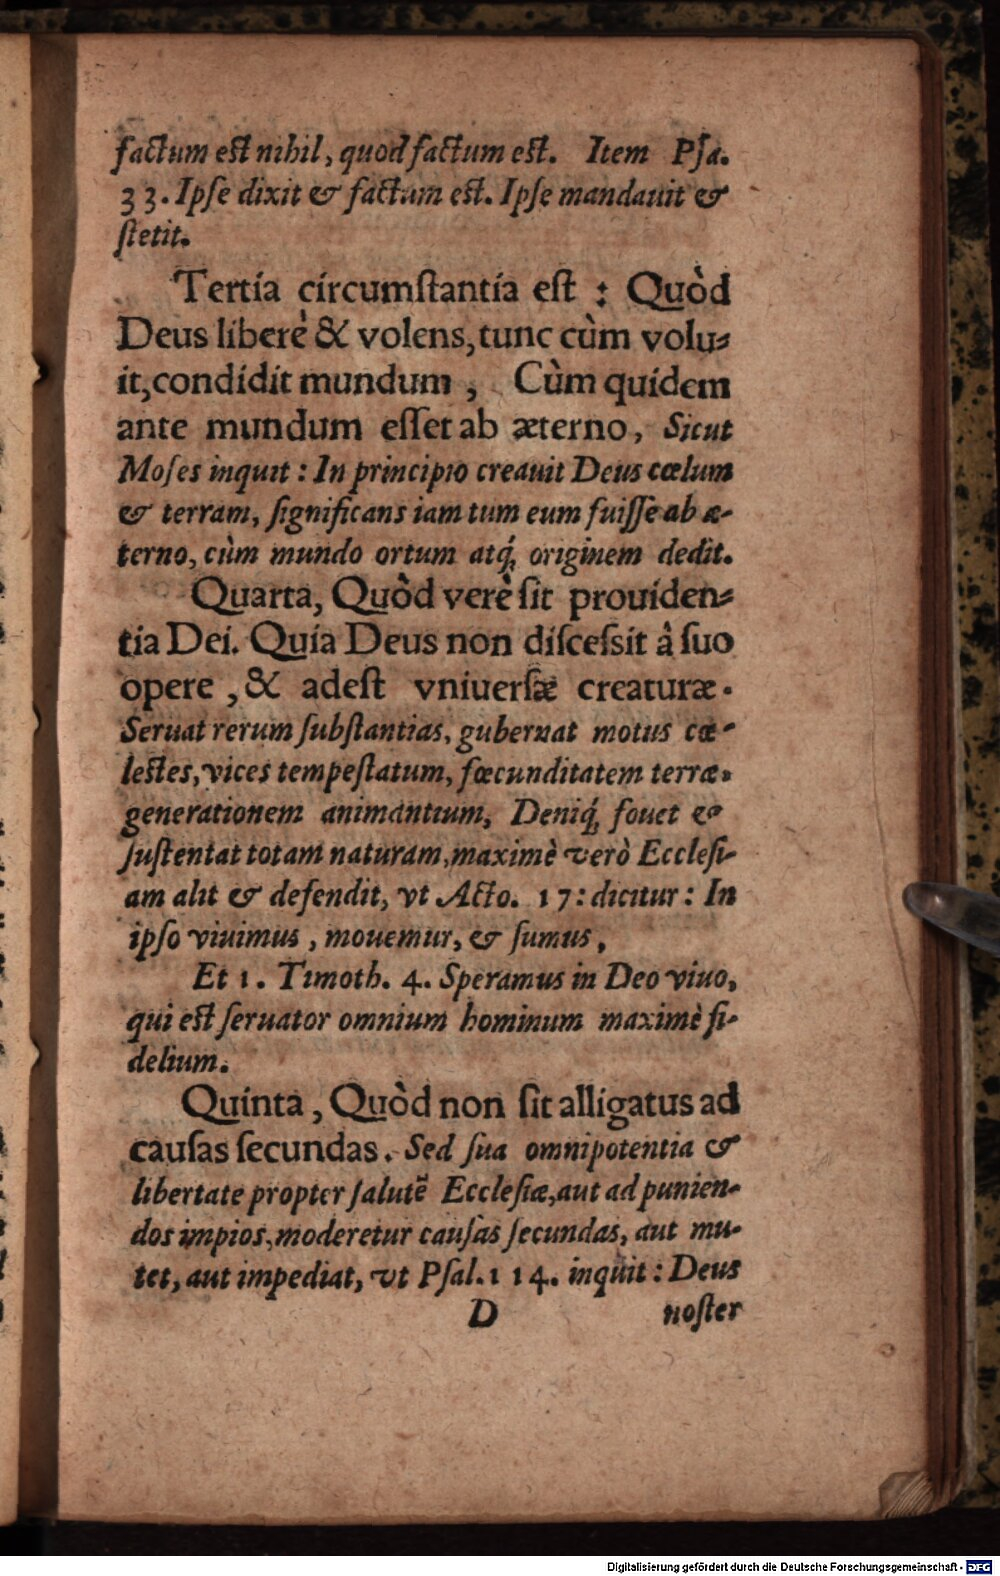 factum est nihil, quod factum est. Item Pſa.
33. Ipſe dixit & factum est. Ipſe mandauit &
ſtetit.
Tertia circumſtantia eſt : Quòd
Deus liberè & volens, tunc cùm volu-
it, condidit mundum , Cùm quidem
ante mundum eſſet ab æterno, Sicut
Moſes inquit : In principio creauit Deus cœlum
& terram, ſignificans iam tum eum fuiſſe ab æ-
terno, cùm mundo ortum atq́; originem dedit.
Quarta, Quòd verè ſit prouiden-
tia Dei. Quia Deus non diſceſsit à ſuo
opere , & adeſt vniuerſæ creaturæ.
Seruat rerum ſubſtantias, gubernat motus cœ-
lestes, vices tempeſtatum, fœcunditatem terræ,
generationem animantium, Deniq́; fouet &
ſuſtentat totam naturam, maximè verò Eccleſi-
am alit & defendit, vt Acto. 17: dicitur : In
ipſo viuimus , mouemur, & ſumus,
Et 1. Timoth. 4. Speramus in Deo viuo,
qui est ſeruator omnium hominum maximè fi-
delium.
Quinta, Quòd non ſit alligatus ad
cauſas ſecundas. Sed ſua omnipotentia &
libertate propter ſalutē Eccleſiæ, aut ad punien-
dos impios, moderetur cauſas ſecundas, aut mu-
tet, aut impediat, vt Pſal. 114. inquit : Deus
D noſter
Digitalisierung gefördert durch die Deutsche Forschungsgemeinschaft - DFG